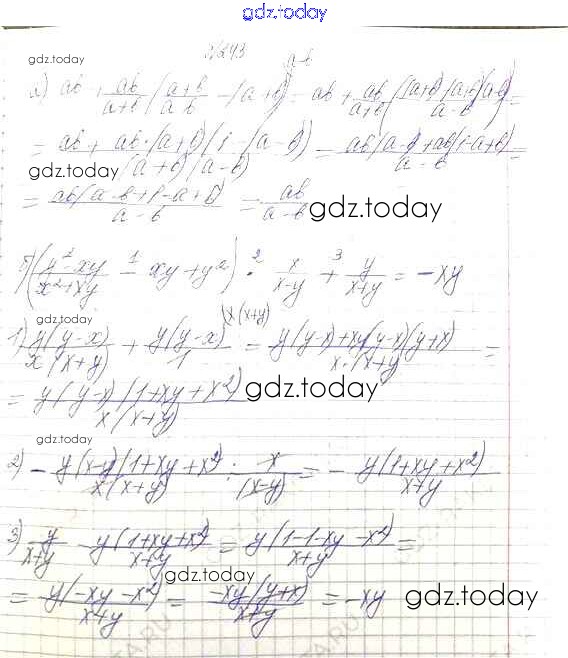 gdz.today
N243
gdz.today
a-b
а) ab + ab/(a+b) ((a+b)/(a-b) - (a+b)) = ab + ab/(a+b) ((a+b)-(a+b)(a-b))/(a-b) =
= (ab + ab·(a+b)(1-(a-b)))/((a+b)(a-b)) = (ab(a-b)+ab(1-a+b))/(a-b) =
gdz.today
= (ab(a-b+1-a+b))/(a-b) = ab/(a-b) gdz.today
б) ((y²-xy)/(x²+xy) 1 - xy+y²) · 2 x/(x-y) + 3 y/(x+y) = -xy
gdz.today
(x(x+y)
1) y(y-x)/(x(x+y)) + y(y-x)/1 = (y(y-x)+xy(y-x)(y+x))/(x·(x+y)) =
= y(y-x)(1+xy+x²)/(x(x+y)) gdz.today
gdz.today
2) - y(x-y)(1+xy+x²)/(x(x+y)) · x/(x-y) = - y(1+xy+x²)/(x+y)
3) y/(x+y) - y(1+xy+x²)/(x+y) = y(1-1-xy-x²)/(x+y) =
gdz.today
= y(-xy-x²)/(x+y) = -xy(y+x)/(x+y) = -xy gdz.today